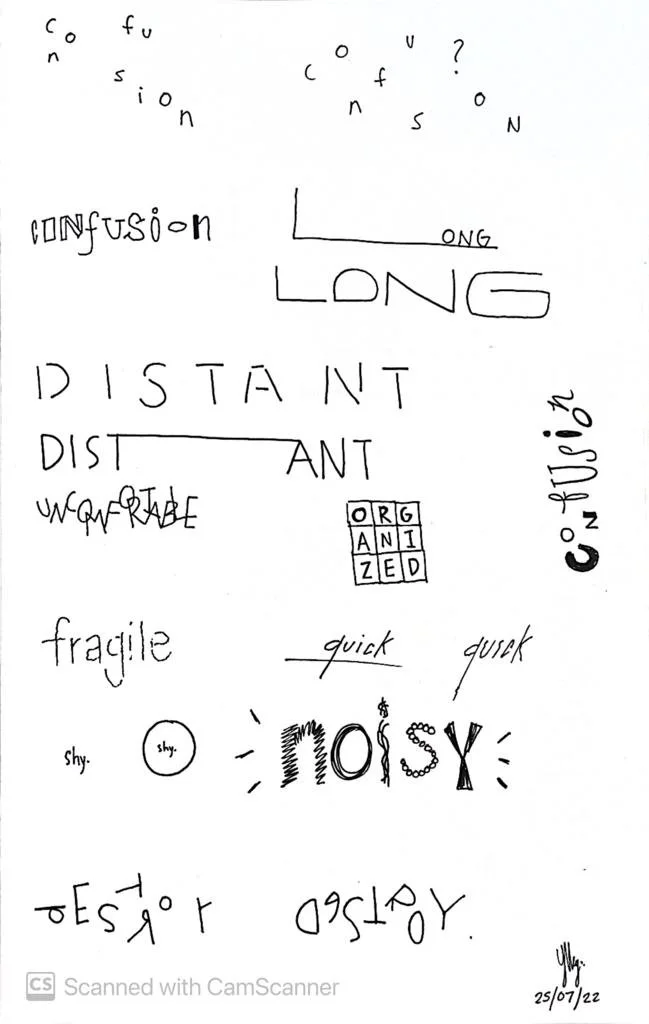 confusion
confus?oN
confusion
LONG
LONG
DISTANT
DISTANT
confusion
UNCOMFORTABLE
ORG
ANI
ZED
fragile
quick quick
shy. shy. noisy
DESTROY DESTROY.
25/07/22
CS Scanned with CamScanner